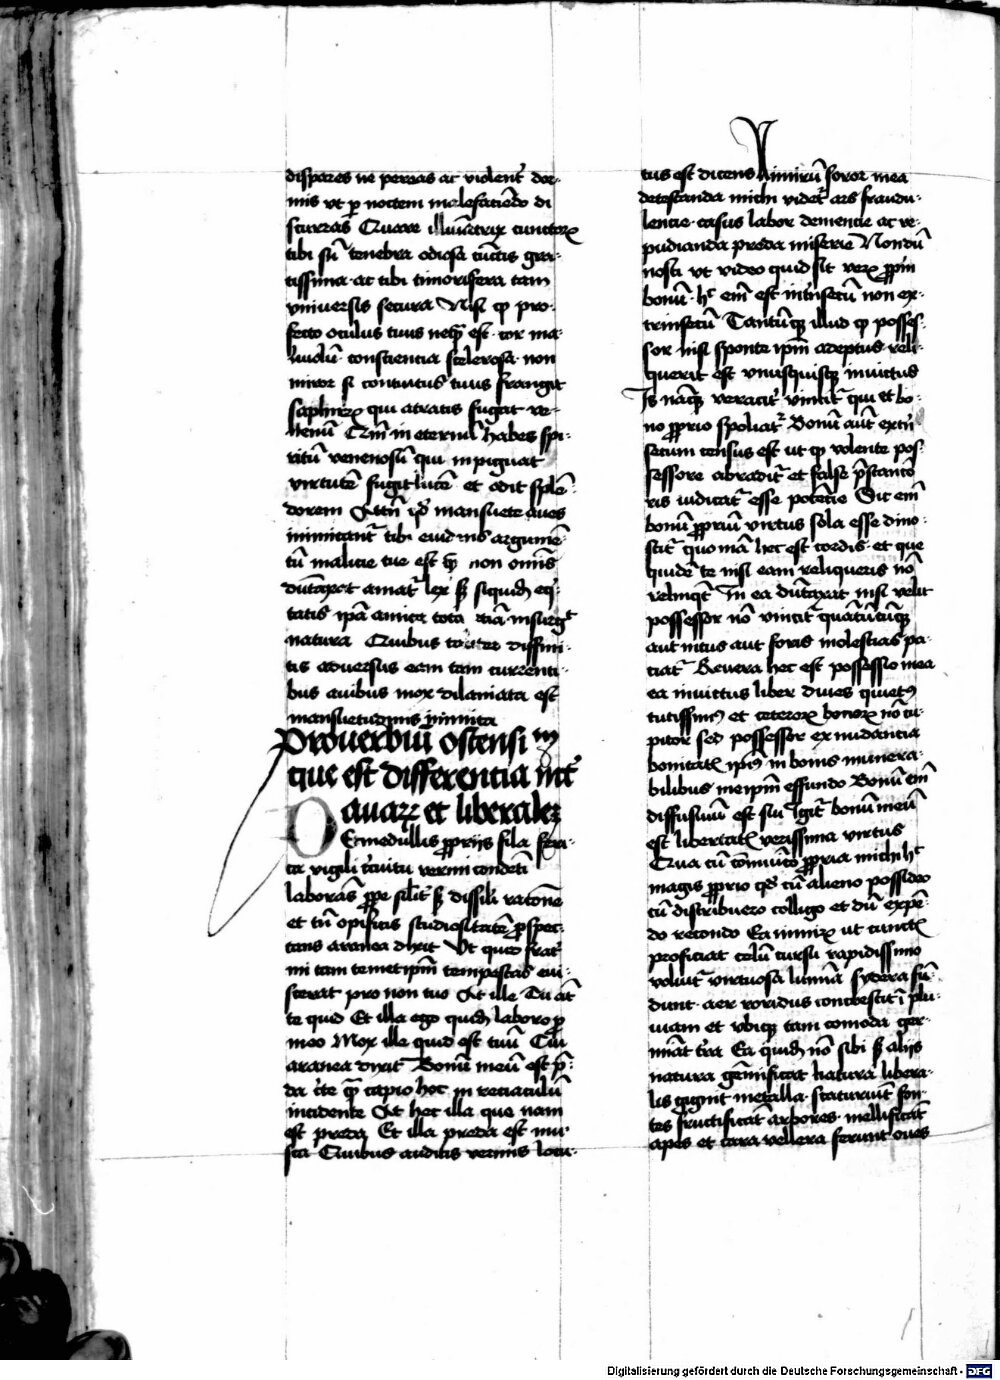 dispares ne pereas ac violent̄ dor-
mis vt p noctem malefaciēdo di
scurras Quare illuīatrix cunctorꝝ
tibi sū tenebra odiosa cūctis gra-
tissima ac tibi timorifera tam
vniuersis secura Nisi ꝙ pro-
fecto oculus tuus neqͣ est cor ma-
liuolū conscientia scelerosa non
miror si contuitus tuus frangit
saphirꝝ qui atratis fugat ve-
nenū in eternū habes spi-
ritū venenosū qui inpiguat
virtutē fugit lucē et odit splē-
dorem mansuete aues
inimicant᷑ tibi argumē-
tū malicie tue est non om̄is
dūtaxat amat᷑ lex siquidē eq̄-
tatis ip̄a amica tota etiā insurg᷑
natura Quibus diffini-
tis aduersus eam tam currenti-
bus auibus mox dilaniata est
mansuetudinis inimica
Prouerbiū ostensiuū
que est differentia int̄
auarꝝ et liberalez
E medullis ꝓprijs fila seri-
ca vigili vermi condētī
laborās silit̄ dissili ratōne
et tn̄ opificis studiositatē ꝓspec-
tans aranea dixit Vt quid frat̄
mi tam temetip̄m tempestas eui-
scerat pro non tuo At ille Tu at̄
te quid Et illa ego quidē laboro ꝓ
meo Mox ille quid est tuū Cui
aranea dixit Bonū meū est p̄-
da capio hoc in reciaculū
incidente At hec illa que nam
est preda Et illa preda est mu-
sca Quibus auditis vermis locu-
tus est dicens Nimirū soror mea
detestanda michi videt᷑ ars fraudu-
lencie casus labor demencie ac re-
pudianda preda miserie Nondū
nosti vt video quid sit verꝝ ꝓpriū
bonū hͦ em̄ est int̄nsecū non ex-
trinsecū Tantūqꝫ illud ꝙ posses-
sor nisi sponte ip̄m adeptus reli-
querit est vnusquisqꝫ inuictus
Is nāqꝫ veracit̄ vincit᷑ qui et bo-
no ꝓprio spoliat᷑ Bonū aūt extrī
secum census est ut ꝙ volente pos-
sessore abradit᷑ et false p̄stantio
ris iudicat᷑ esse potēcie Sit em̄
bonū ꝓpriū virtus sola esse dino-
scit᷑ quoniā hec est cordis et que
quidē te nisi eam reliqueris nō
relinqͥt In ea dūtaxat nisi velit
possessor nō vincit᷑ quātūcūqꝫ
aut intus aut foris molestias pa-
ciat᷑ Reuera hec est possessio mea
ea inuictus liber diues quietꝰ
tutissimꝰ et ceterorꝝ bonorꝝ nō cu-
pitor sed possessor ex nudancia
bonitatꝭ ip̄iꝰ in bonis munera-
bilibus meip̄m effundo Bonū em̄
diffusiuū est sui Igit᷑ bonū meū
est libertatꝭ verissima virtus
Qua cū ꝓpria michi hͦ
magis ꝓprio qͥd cū alieno possideo
cū distribuero colligo et dū expē-
do recondo Ea nimirꝝ ut cunctꝭ
proficiat celū cursu rapidissimo
voluit᷑ virtuosa lumīa sydera fū-
dunt aer roridus concrescit ī plu-
uiam et vbiqꝫ tam comoda ger-
mināt t̄ra Ea quidē nō sibi sꝫ alijs
natura gēmificat natura libera-
lis gignit metalla scaturiūt fon-
tes fructificāt arbores mellificāt
apes et cara vellera ferunt oues
Digitalisierung gefördert durch die Deutsche Forschungsgemeinschaft - DFG